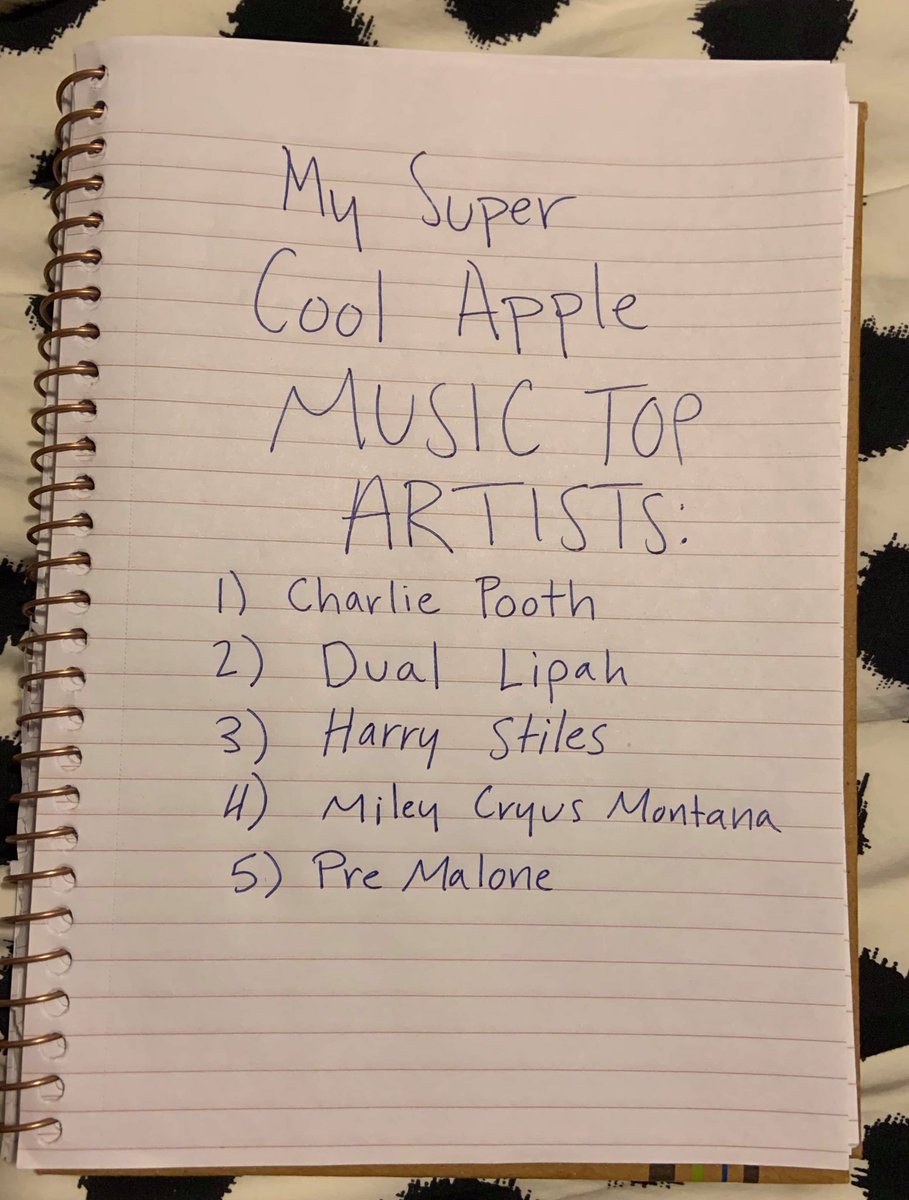 My Super
Cool Apple
MUSIC TOP
ARTISTS:
1) Charlie Pooth
2) Dual Lipah
3) Harry Stiles
4) Miley Cryus Montana
5) Pre Malone